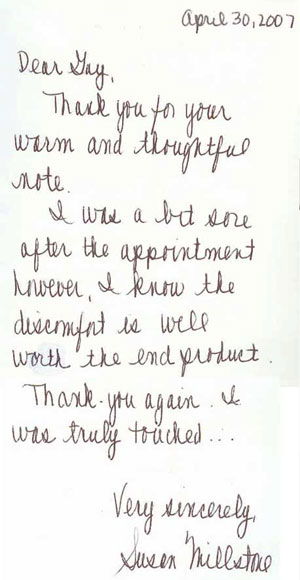 April 30, 2007
Dear Gay,
Thank you for your
warm and thoughtful
note.
I was a bit sore
after the appointment
however, I know the
discomfort is well
worth the end product.
Thank-you again. I
was truly touched...
Very sincerely,
Susan Millstone